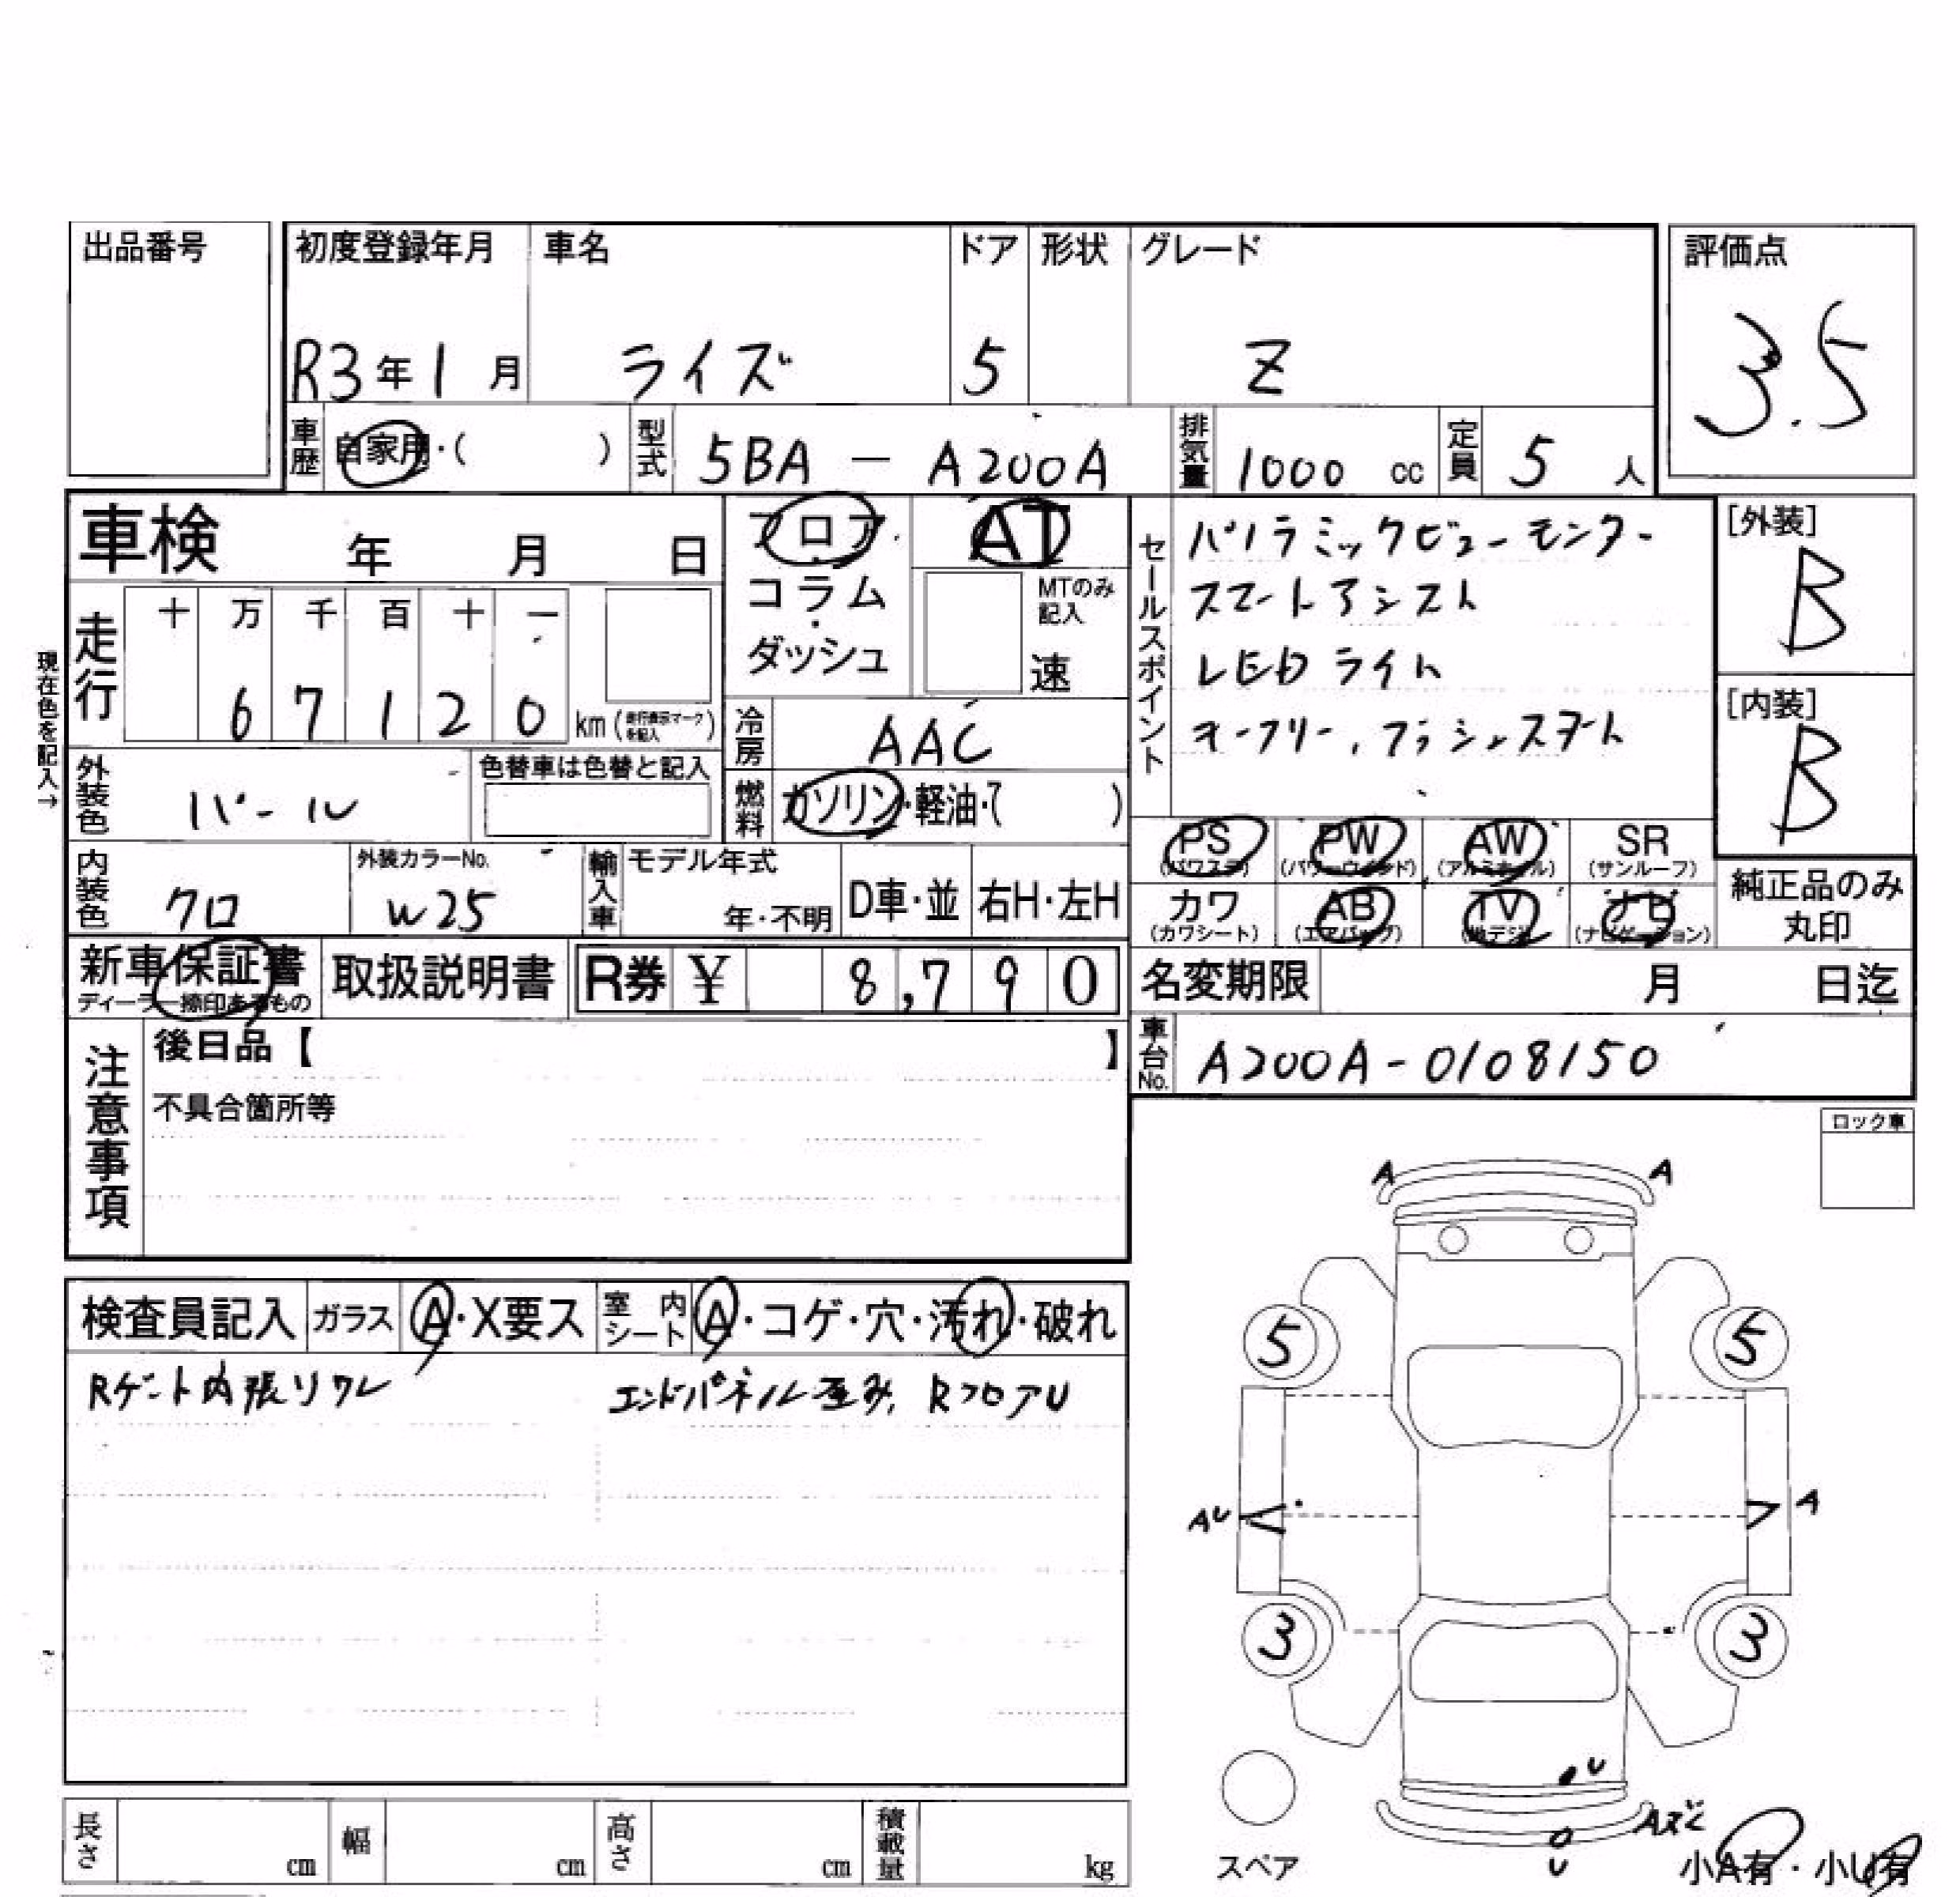 出品番号
初度登録年月 車名 ドア 形状 グレード 評価点
R3年1月 ライズ 5 Z 3.5
車歴 自家用・( ) 型式 5BA - A200A 排気量 1000 cc 定員 5 人
車検 年 月 日
フロア・コラム・ダッシュ
AT
MTのみ記入
速
現在色を記入→
走行 十 万 千 百 十 一
6 7 1 2 0 km (走行表示マークを記入)
冷房 AAC
燃料 ガソリン・軽油・( )
外装色 パール
色替車は色替と記入
内装色 クロ
外装カラーNo. W25
輸入車 モデル年式 年・不明 D車・並 右H・左H
セールスポイント
パノラミックビューモンター
スマートアシスト
LEDライト
キーフリー、プッシュスタート
[外装]
B
[内装]
B
PS (パワステ) PW (パワーウインド) AW (アルミホイル) SR (サンルーフ)
カワ (カワシート) AB (エアバック) TV (地デジ) ナビ (ナビゲーション)
純正品のみ丸印
新車保証書
ディーラー捺印あるもの
取扱説明書
R券 ¥ 8,790
名変期限 月 日迄
車台No. A200A-0108150
注意事項
後日品【 】
不具合箇所等
ロック車
検査員記入 ガラス A・X要ス 室内シート A・コゲ・穴・汚れ・破れ
Rゲート内張リワレ エンドパネル歪み、RフロアU
A A
5 5
AU A
3 3
U
U
スペア
小A有・小U有
長さ cm 幅 cm 高さ cm 積載量 kg